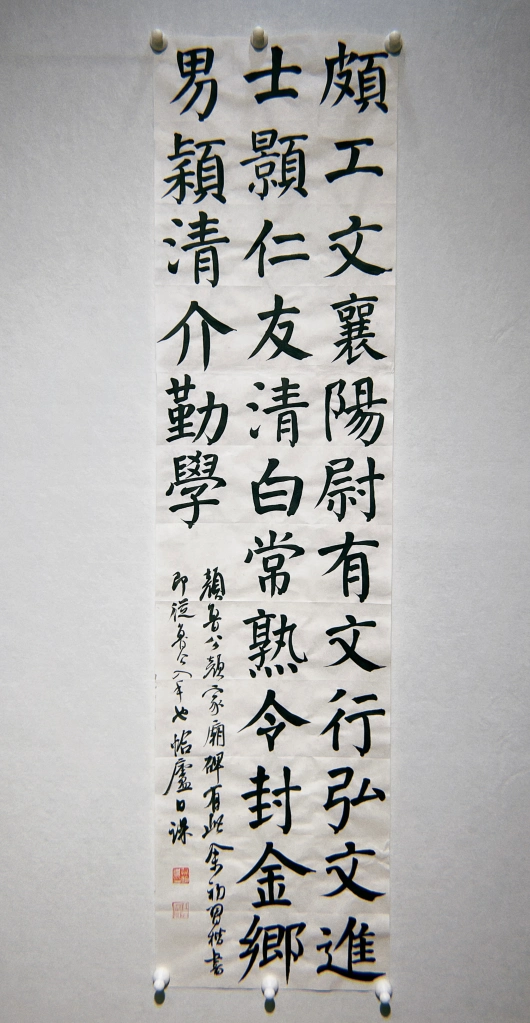 頗工文襄陽尉有文行弘文進
士顥仁友清白常熟令封金鄉
男潁清介勤學
顏魯公顏家廟碑有此余初習楷書
即從魯公入手也帖廬日課